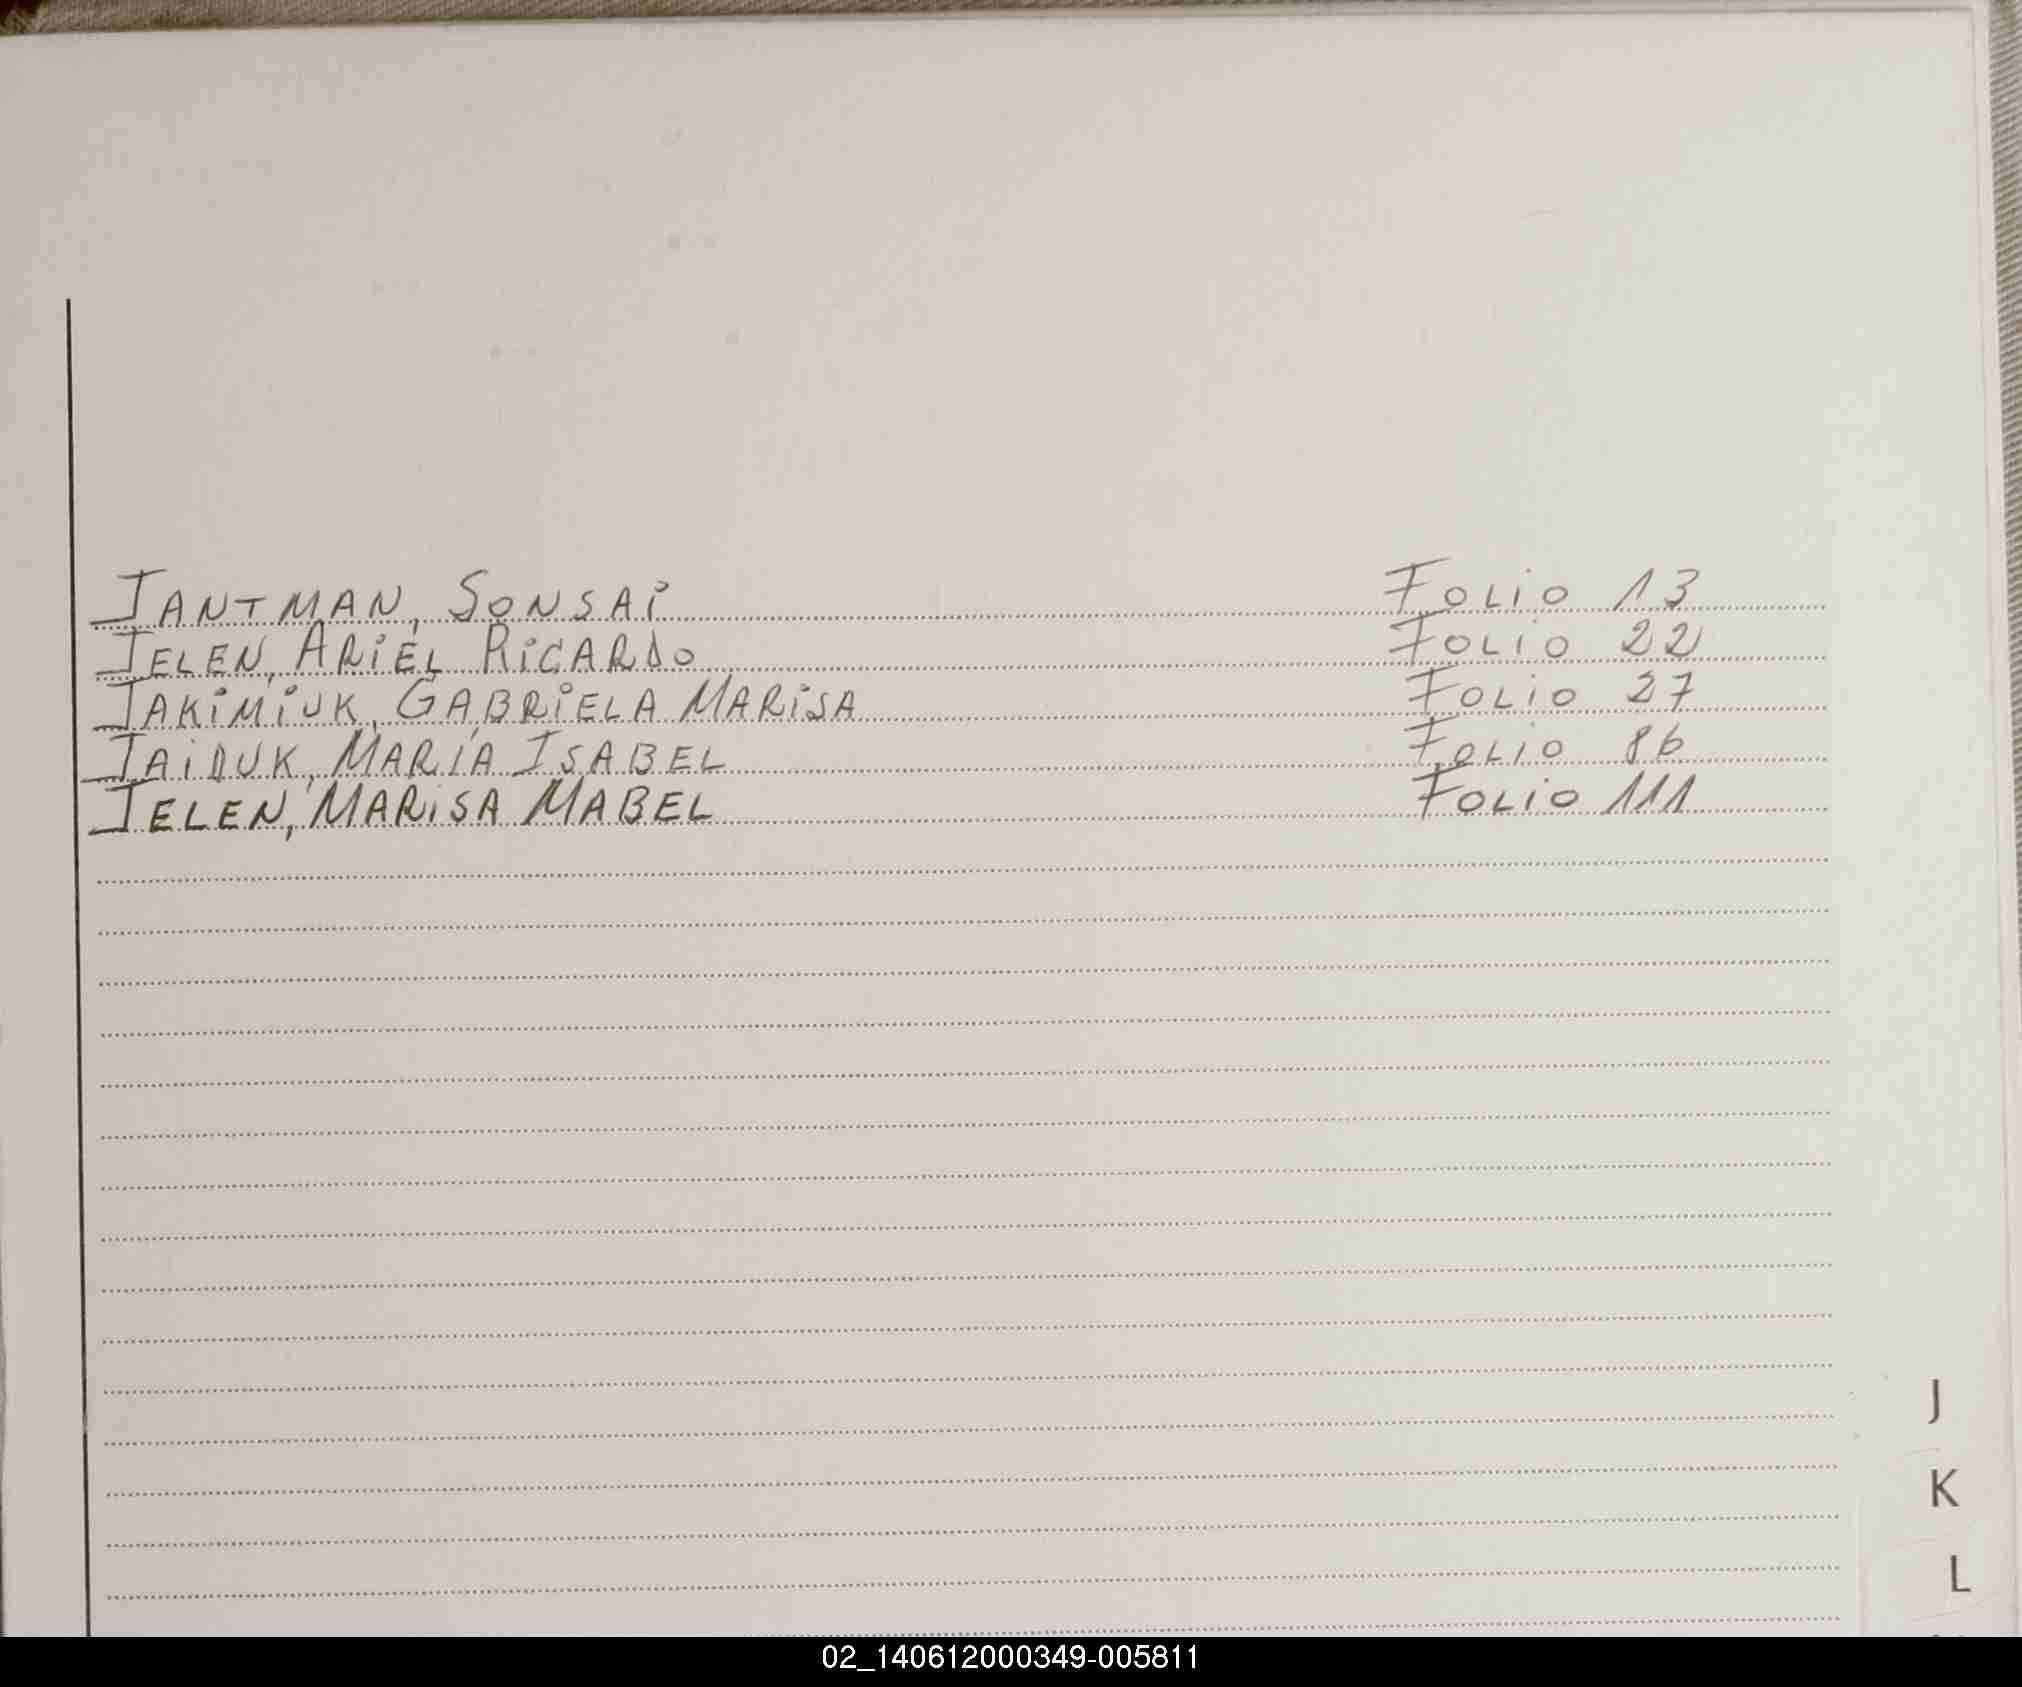 JANTMAN, SONSAI Folio 13
JELEN, ARIEL RICARDO Folio 22
JAKIMIUK, GABRIELA MARISA Folio 27
JAIDUK, MARÍA ISABEL Folio 86
JELEN, MARISA MABEL Folio 111
J
K
L
02_140612000349-005811